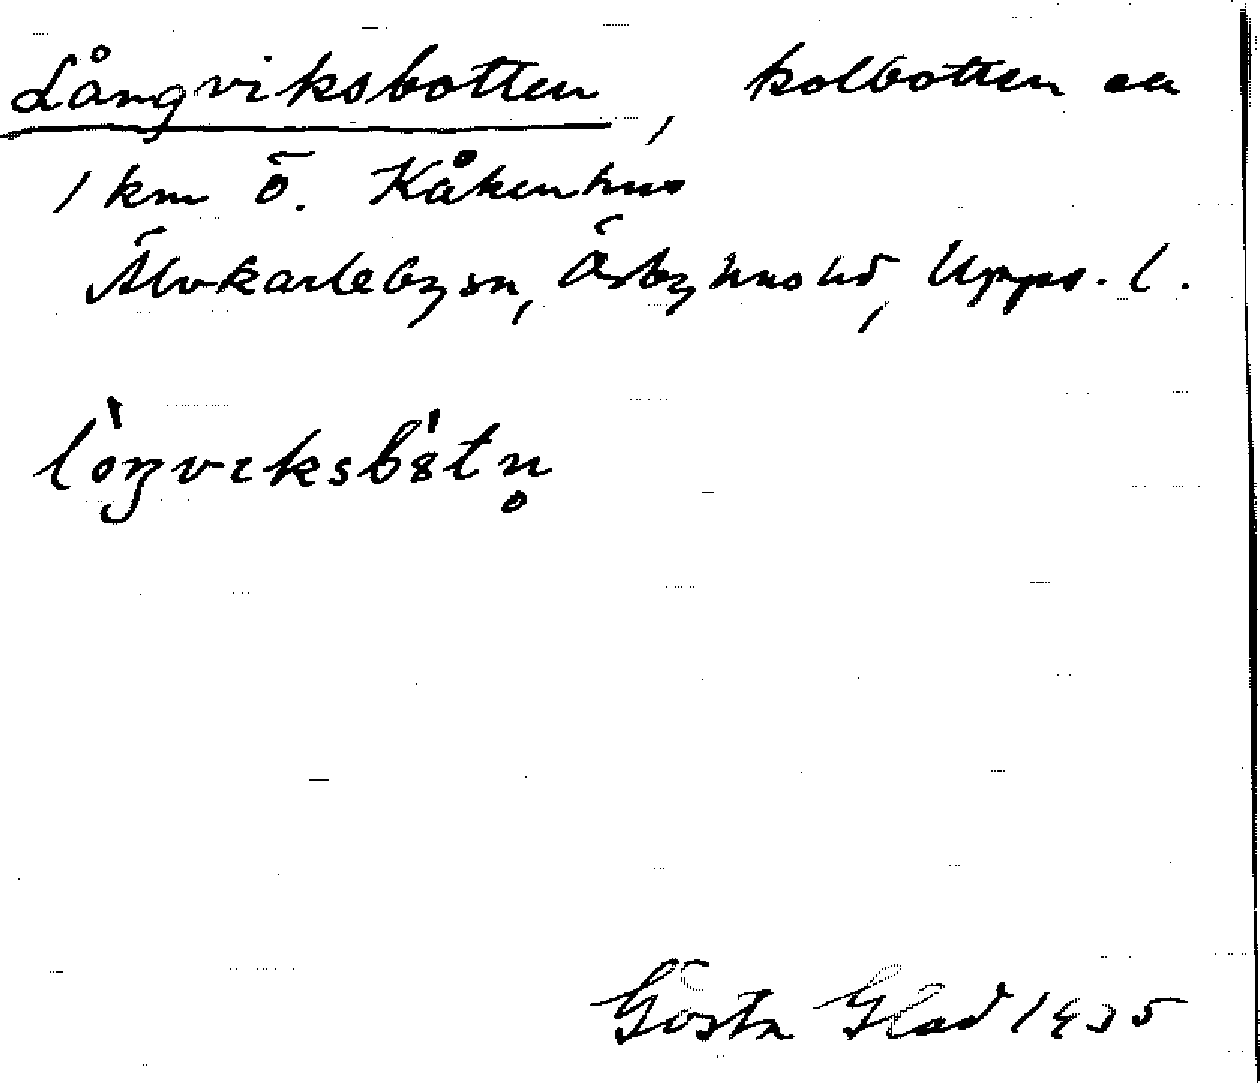 Långviksbotten, kolbotten ca
1 km Ö. Kåkenhus
Älvkarleby sn, Örbyhus hd, Upps. l.
Gösta Glad 1935